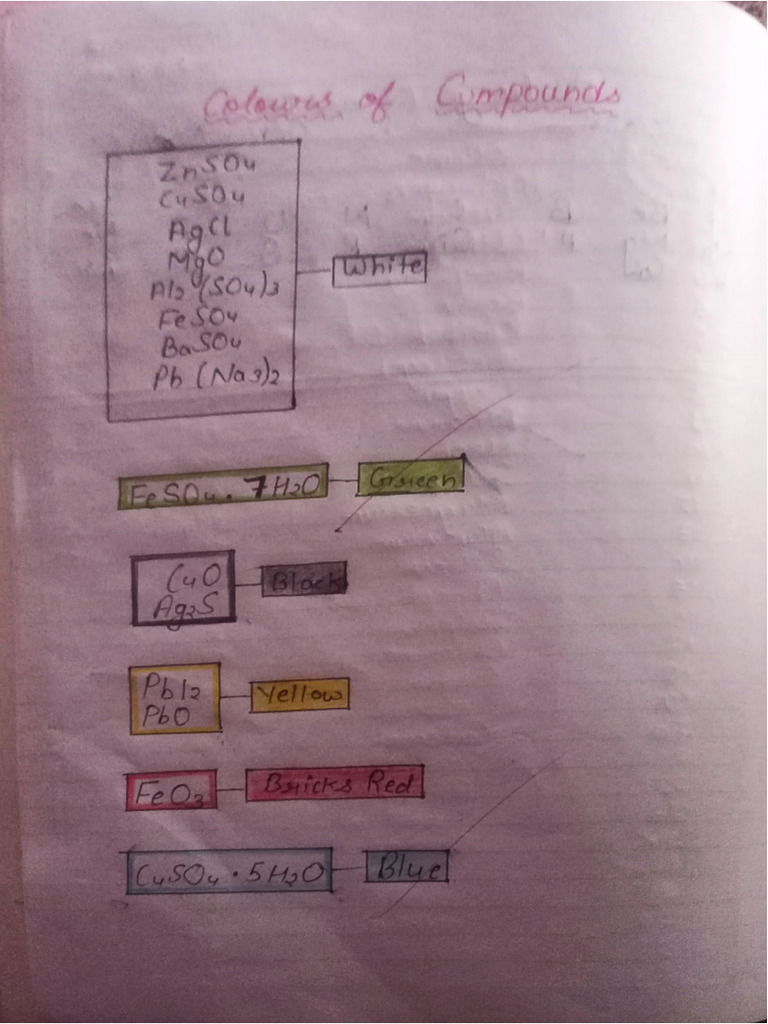 Colours of Compounds
ZnSO4
CuSO4
AgCl
MgO
Al2(SO4)3
FeSO4
BaSO4
Pb(Na3)2
White
FeSO4 . 7H2O
Green
CuO
Ag2S
Black
PbI2
PbO
Yellow
FeO3
Bricks Red
CuSO4 . 5H2O
Blue